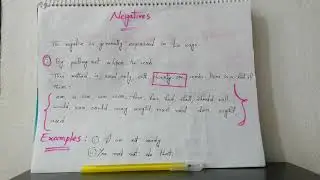 Negatives
The negative is generally expressed in two ways
① By putting not after the verb.
This method is used only with twenty one verbs. Here is a list of them:
am, is, are, was, were, have, has, had, shall, should, will
would, can, could, may, might, must, need, dare, ought
used
Examples: ① I am not ready
② You must not do that.